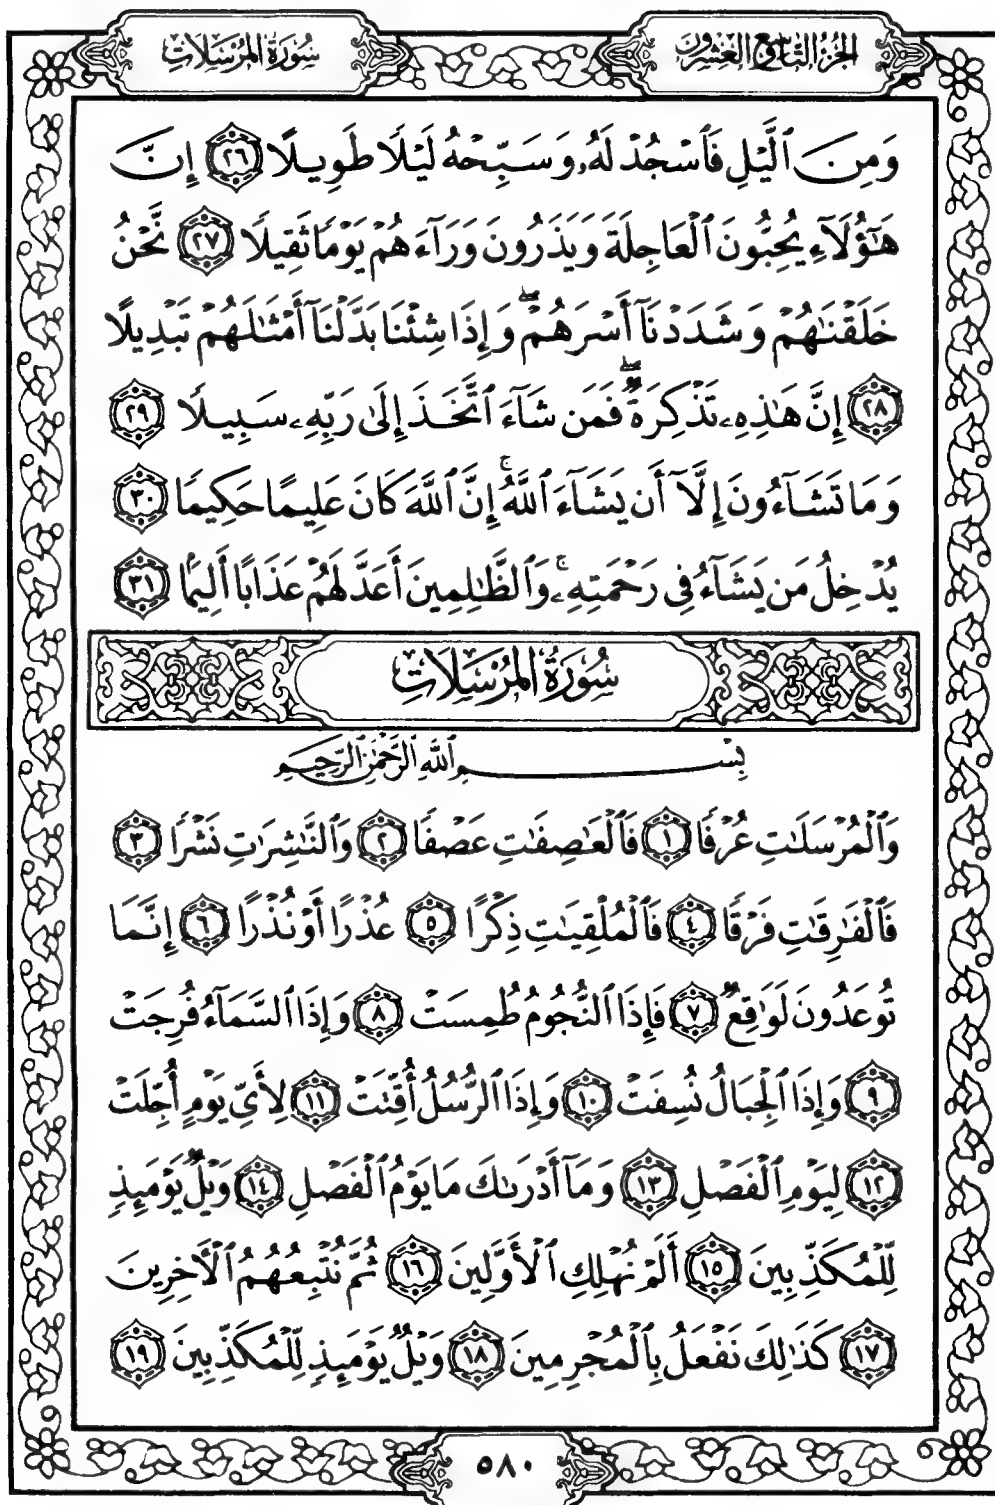 الجزء التاسع والعشرون
سورة المرسلات
وَمِنَ ٱلَّيْلِ فَٱسْجُدْ لَهُۥ وَسَبِّحْهُ لَيْلًا طَوِيلًا ٢٦ إِنَّ
هَٰٓؤُلَآءِ يُحِبُّونَ ٱلْعَاجِلَةَ وَيَذَرُونَ وَرَآءَهُمْ يَوْمًا ثَقِيلًا ٢٧ نَّحْنُ
خَلَقْنَٰهُمْ وَشَدَدْنَآ أَسْرَهُمْ ۖ وَإِذَا شِئْنَا بَدَّلْنَآ أَمْثَٰلَهُمْ تَبْدِيلًا
٢٨ إِنَّ هَٰذِهِۦ تَذْكِرَةٌ ۖ فَمَن شَآءَ ٱتَّخَذَ إِلَىٰ رَبِّهِۦ سَبِيلًا ٢٩
وَمَا تَشَآءُونَ إِلَّآ أَن يَشَآءَ ٱللَّهُ ۚ إِنَّ ٱللَّهَ كَانَ عَلِيمًا حَكِيمًا ٣٠
يُدْخِلُ مَن يَشَآءُ فِى رَحْمَتِهِۦ ۚ وَٱلظَّٰلِمِينَ أَعَدَّ لَهُمْ عَذَابًا أَلِيمًۢا ٣١
سُورَةُ المُرْسَلَاتِ
بِسْمِ ٱللَّهِ ٱلرَّحْمَٰنِ ٱلرَّحِيمِ
وَٱلْمُرْسَلَٰتِ عُرْفًا ١ فَٱلْعَٰصِفَٰتِ عَصْفًا ٢ وَٱلنَّٰشِرَٰتِ نَشْرًا ٣
فَٱلْفَٰرِقَٰتِ فَرْقًا ٤ فَٱلْمُلْقِيَٰتِ ذِكْرًا ٥ عُذْرًا أَوْ نُذْرًا ٦ إِنَّمَا
تُوعَدُونَ لَوَٰقِعٌ ٧ فَإِذَا ٱلنُّجُومُ طُمِسَتْ ٨ وَإِذَا ٱلسَّمَآءُ فُرِجَتْ
٩ وَإِذَا ٱلْجِبَالُ نُسِفَتْ ١٠ وَإِذَا ٱلرُّسُلُ أُقِّتَتْ ١١ لِأَىِّ يَوْمٍ أُجِّلَتْ
١٢ لِيَوْمِ ٱلْفَصْلِ ١٣ وَمَآ أَدْرَىٰكَ مَا يَوْمُ ٱلْفَصْلِ ١٤ وَيْلٌ يَوْمَئِذٍ
لِّلْمُكَذِّبِينَ ١٥ أَلَمْ نُهْلِكِ ٱلْأَوَّلِينَ ١٦ ثُمَّ نُتْبِعُهُمُ ٱلْءَاخِرِينَ
١٧ كَذَٰلِكَ نَفْعَلُ بِٱلْمُجْرِمِينَ ١٨ وَيْلٌ يَوْمَئِذٍ لِّلْمُكَذِّبِينَ ١٩
٥٨٠